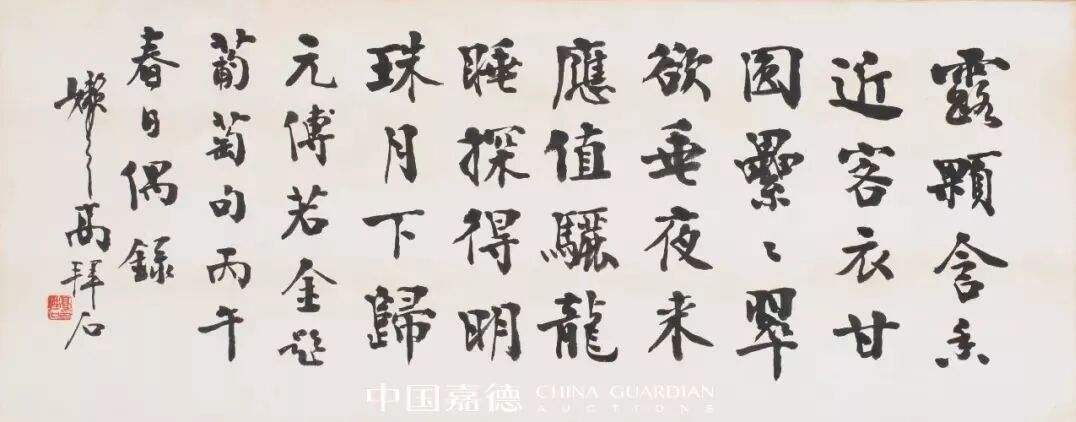 露顆含香
近客衣甘
圓纍〻翠
欲垂夜来
應值驪龍
睡探得明
珠月下歸
元傅若金題
葡萄句丙午
春日偶録
嬾云高拜石
中国嘉德 CHINA GUARDIAN
AUCTIONS